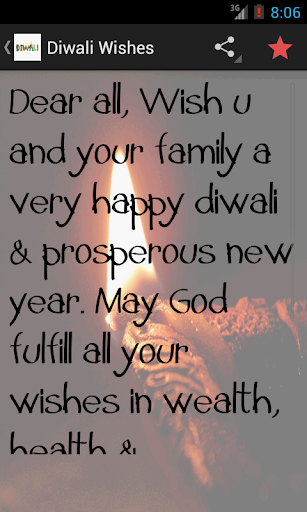 3G 8:06
DIWALI Diwali Wishes
Dear all, Wish u
and your family a
very happy diwali
& prosperous new
year. May God
fulfill all your
wishes in wealth,
health &